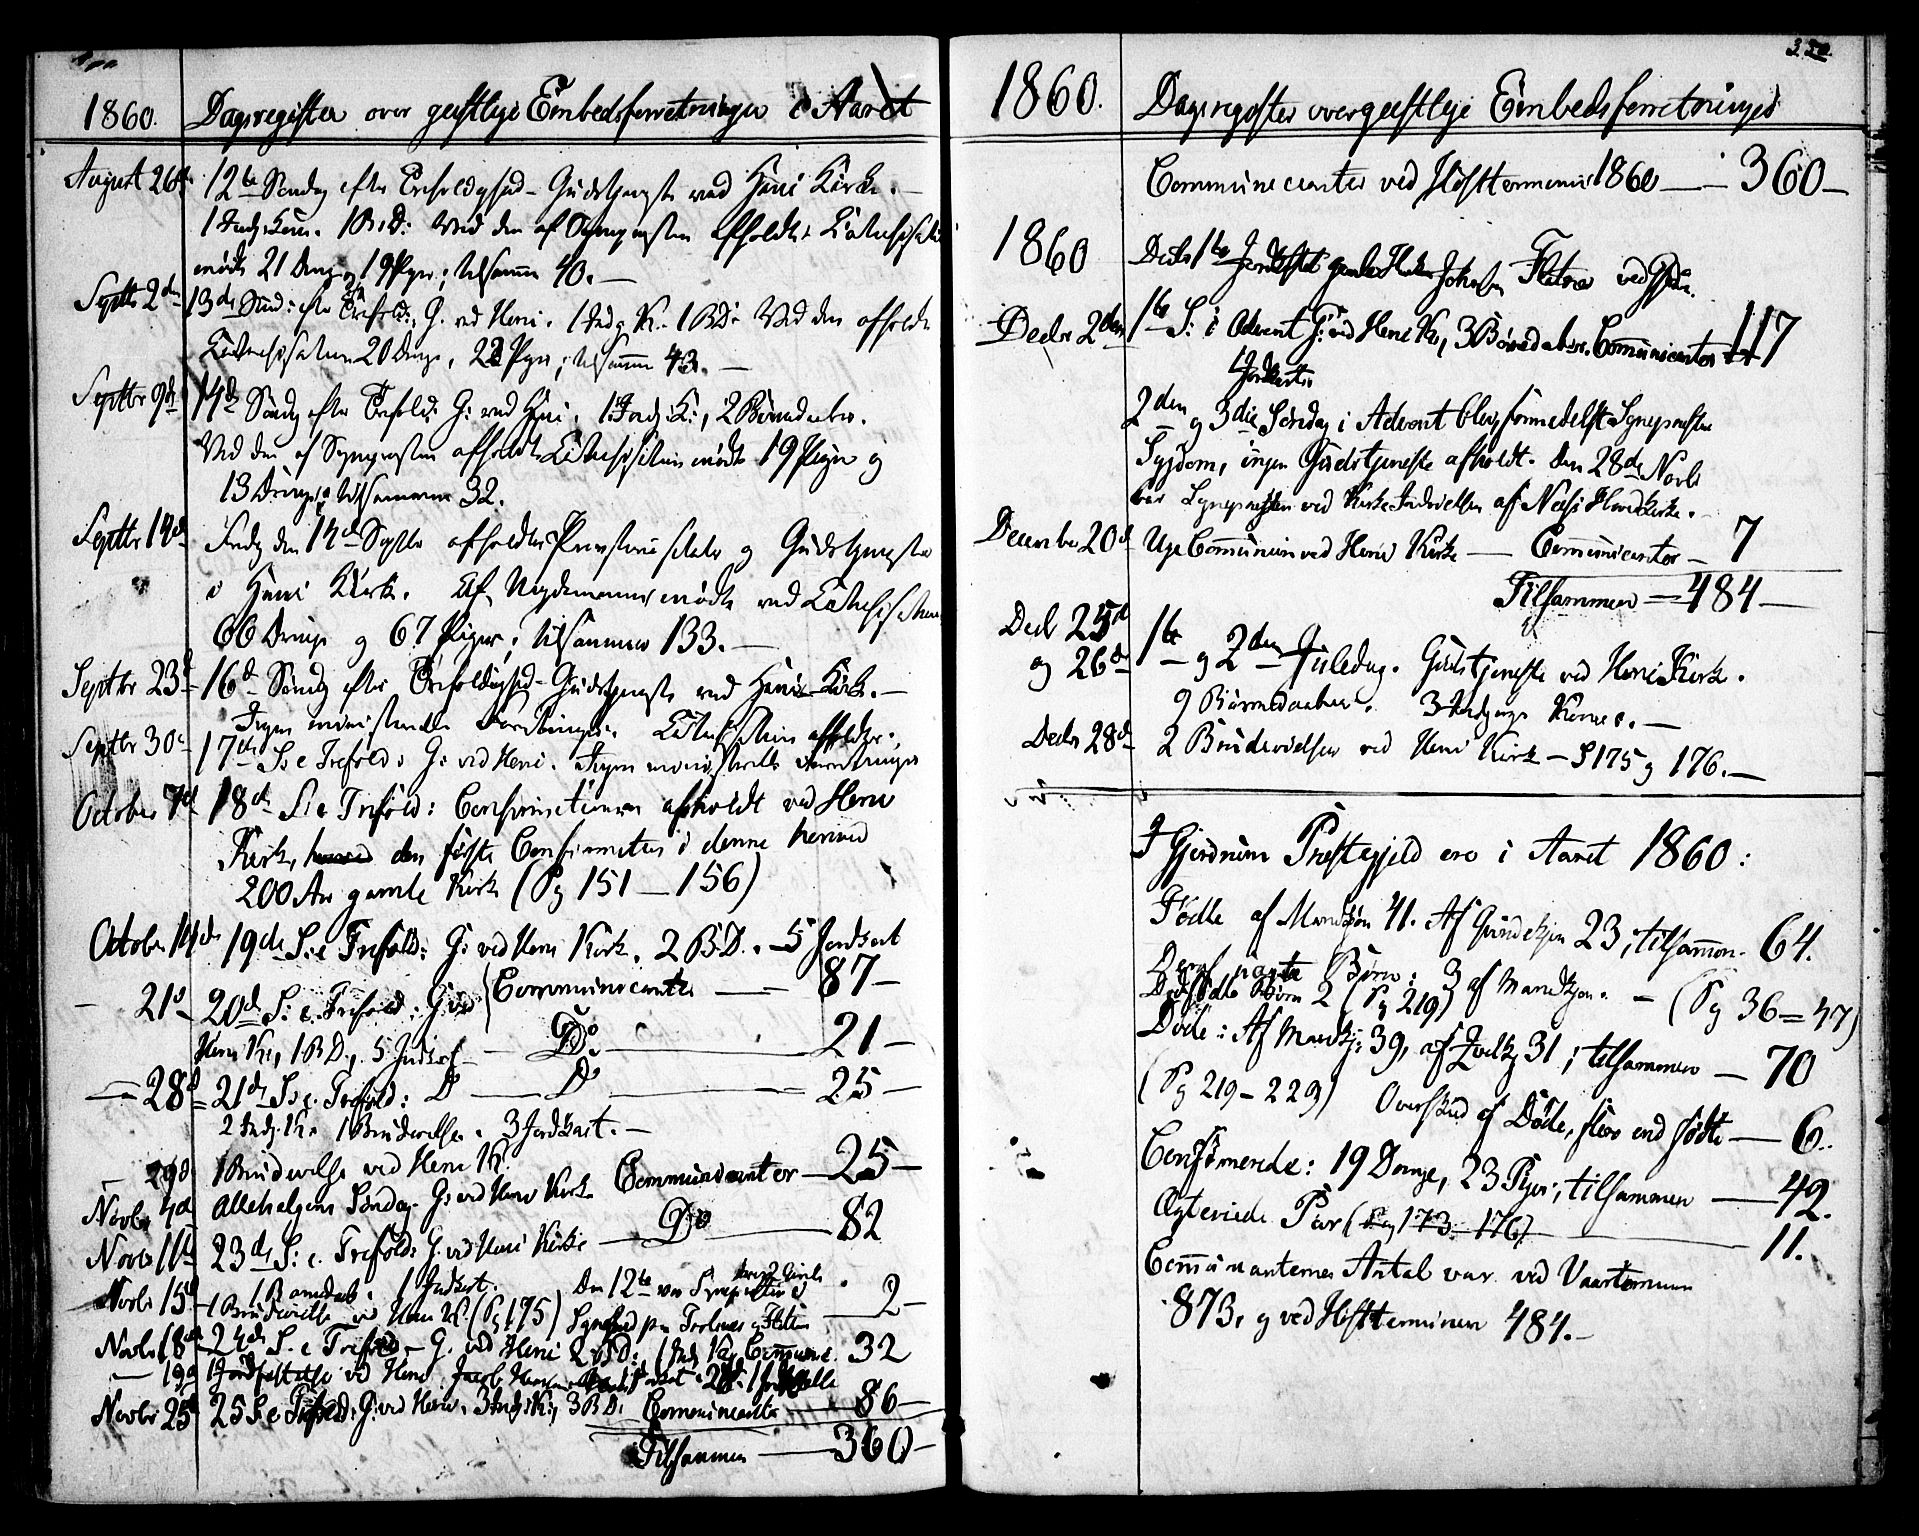 1860. Dagsregister over geistlige Embedsforretninger i Aaret
August 26de 12te Søndag efter Trefoldighed - Gudstjeneste ved Heni Kirke. -
1 Indg. Kone. 1 B.D: Ved den af Sogneprsten afholdte Catechisation
mødte 21 Drenge og 19 Piger; tilsammen 40. -
Septbr 2den 13de Sønd: efter Trefold:, G. ved Heni. 1 Indg K. 1 BD: Ved den afholdte
Catechisation 20 Drenge, 23 Piger; tilsammen 43. -
Septbr 9de 14de Søndag efter Trefold: G: ved Heni. 1 Indg: K:, 2 Barnedaaber.
Ved den af Sognepresten afholdte Catechisation mødte 19 Piger og
13 Drenge, tilsammen 32.
Septbr 14de Fredag den 14de Septbr afholdtes Provstevisitats og Gudstjeneste
i Heni Kirke. Af Ungdommen mødte ved Catechisationen
66 Drenge og 67 Piger; tilsammen 133. -
Septbr 23de 16de Søndag efter Trefoldighed - Gudstjeneste ved Heni Kirke. -
Ingen ministerielle Forretninger. Catechisation afholdtes.
Septbr 30te 17de S. e Trefold: G: ved Heni. Ingen ministerielle Forretninger
October 7de 18de S: e Trefold: Confirmationen afholdt ved Heni
Kirke, den første Confirmation i denne henved
200 Aar gamle Kirke (Pg 151 - 156)
October 14de 19de S: e Trefold: G: ved Heni Kirke. 2 B.D. - 5 Jordkast
- 21de 20de S: e. Trefold: G: ved Communicanter - 87 -
Heni K:, 1 B D., 5 Jordkast - Do - 21 -
- 28de 21de S: e. Trefold: D - Do - 25 -
2 Indg. K. 1 Brudevielse. 3 Jordkast. -
- 29de 1 Brudevielse ved Heni K.
Novbr 4de Allehelgens Søndag. G: ved Heni Kirke Communicanter - 25 -
Novbr 11te 23de S: e. Trefold: G. ved Heni Kirke - Do - 82
1 Barnedaab. 1 Jordkast. Den 12te var Sognepresten i
Novbr 15de 1 Brudevielse ved Heni K. (Pg 175) - 2 -
Novbr 18de 24de S. e Trefold - G. ved Heni 2 BD: 1 Indg K. Commune. 32
- 19de 1 Jordfæstelse ved Heni
Novbr 25de 25 S. e Trefold: G: ved Heni, 3 Indg: K:, 3 B D. Communicanter - 86 -
Tilsammen - 360 -
330.
1860. Dagsregister over geistlige Embedsforretninger
Communicanter ved Høstterminen 1860 - 360 -
1860 Decbr 1te Flatner ved Gjerdr.
Decbr 2den 1te S: i Advent G: ved Heni K., 3 Barnedaaber. Communicanter 117
Jordkaster
2den og 3die Søndag i Advent blev formedelst Sogneprestens
Sygdom, ingen Gudstjeneste afholdt. Den 28de Novbr
var Sognepresten ved Kirke Indvielsen af Næs Hovedkirke.
December 20de Uge Communion ved Heni Kirke - Communicanter - 7
Tilsammen - 484 -
Decbr 25de 1te og 2den Juledag. Gudstjeneste ved Heni Kirke.
og 26de 9 Barnedaaber. 3 Indgangs Koner. -
Decbr 28de 2 Brudevielser ved Heni Kirke - S 175 og 176. -
I Gjerdrum Prestegjeld ere i Aaret 1860:
Fødte af Mandkjøn 41. Af Qvindekjøn 23; tilsammen - 64.
Deraf uægte Børn: 3 af Mandkjøn. - (Pg 36 - 47)
Dødfødte Børn 2 (Pg 219)
Døde: Af Mandkj: 39, af Qvdkj 31; tilsammen - 70
(Pg 219 - 229) Overskud af Døde, flere end fødte - 6.
Confirmerede: 19 Drenge, 23 Piger; tilsammen - 42.
Ægteviede Par (Pag 173 - 176) - 11.
Communicanternes Antal var ved Vaarterminen
873. og ved Høstterminen 484. -